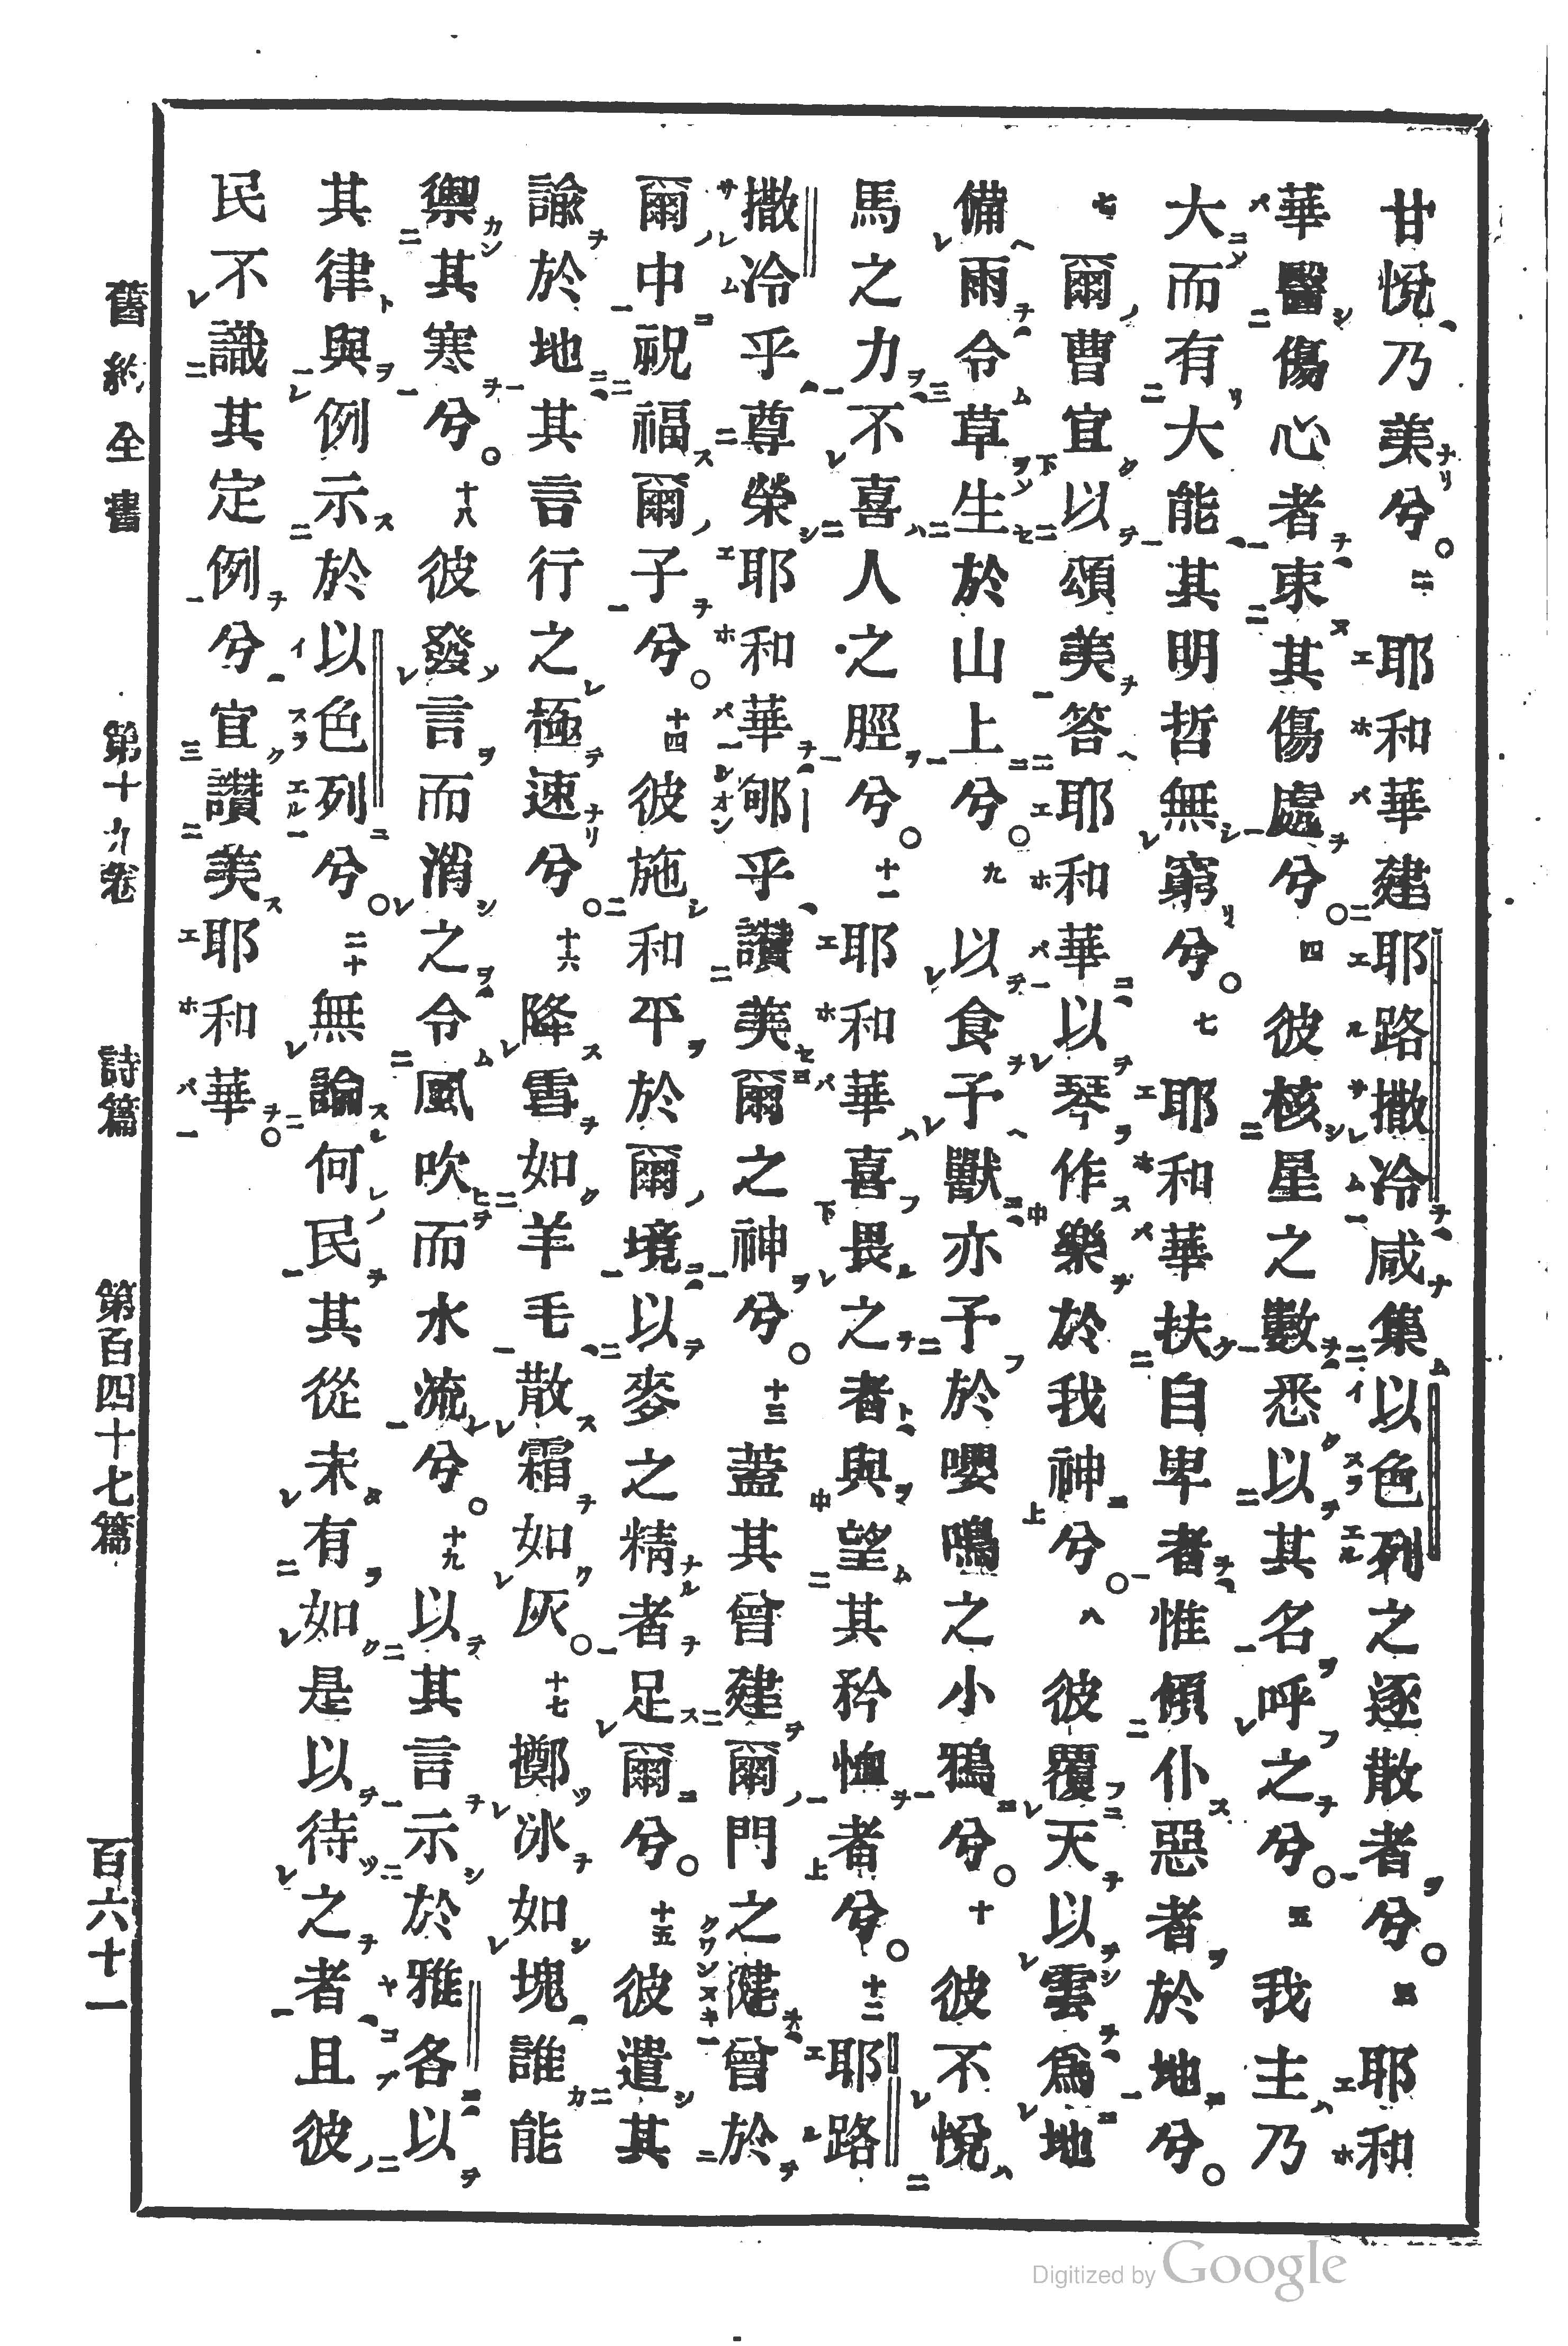 甘悅乃美兮。二耶和華建耶路撒冷咸集以色列之逐散者兮。三耶和
華醫傷心者束其傷處兮。四彼核星之數悉以其名呼之兮。五我主乃
大而有大能其明哲無窮兮。七耶和華扶自卑者惟傾仆惡者於地兮。
七爾曹宜以頌美答耶和華以琴作樂於我神兮。八彼覆天以雲爲地
備雨令草生於山上兮。九以食予獸亦予於嚶鳴之小鴉兮。十彼不悅
馬之力不喜人之脛兮。十一耶和華喜畏之者與望其矜恤者兮。十二耶路
撒冷乎尊榮耶和華郇乎讚美爾之神兮。十三蓋其曾建爾門之楗曾於
爾中祝福爾子兮。十四彼施和平於爾境以麥之精者足爾兮。十五彼遣其
諭於地其言行之極速兮。十六降雪如羊毛散霜如灰。十七擲冰如塊誰能
禦其寒兮。十八彼發言而消之令風吹而水流兮。十九以其言示於雅各以
其律與例示於以色列兮。二十無論何民其從未有如是以待之者且彼
民不識其定例兮宜讚美耶和華。
舊約全書 第十九卷 詩篇 第百四十七篇 百六十一
Digitized by Google